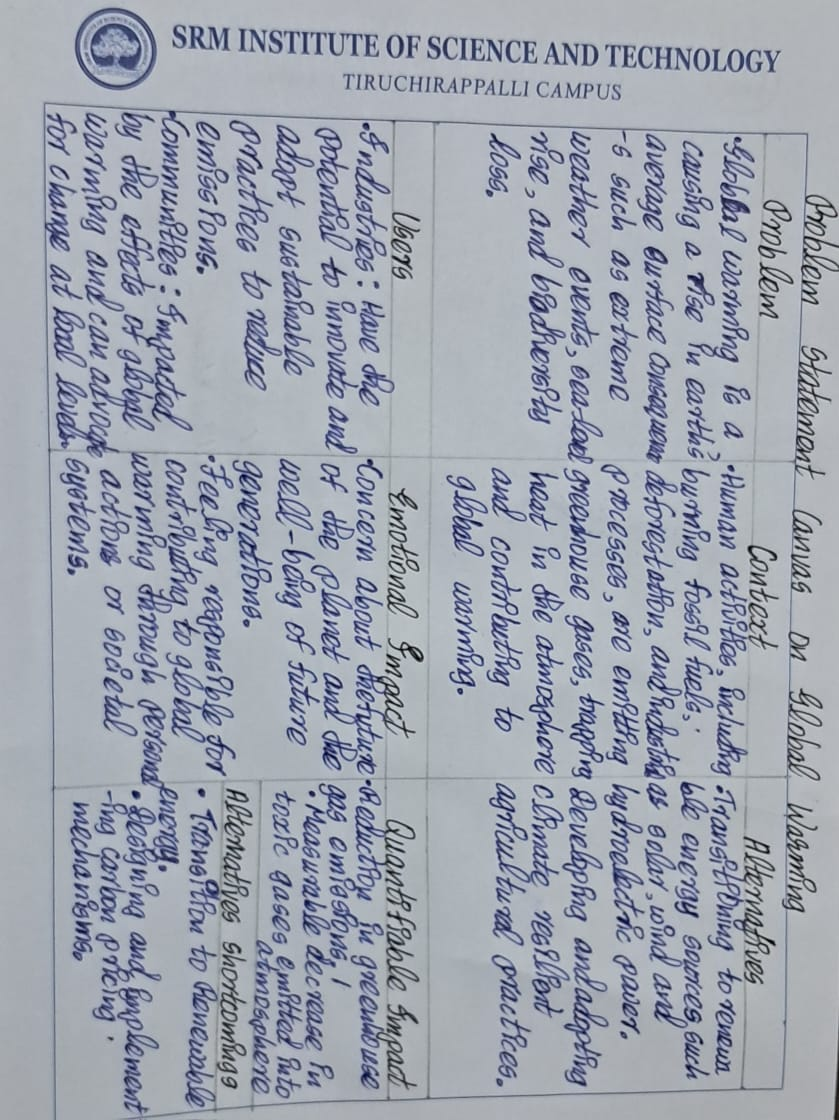 SRM INSTITUTE OF SCIENCE AND TECHNOLOGY
TIRUCHIRAPPALLI CAMPUS
Problem Statement Canvas on Global Warming
Problem
• Global warming is a
causing a rise in earth's
average surface consequen
-s such as extreme
weather events, sea-level
rise, and biodiversity
loss.
Context
• Human activities, including
burning fossil fuels,
deforestation, and industrial
processes, are emitting
greenhouse gases, trapping
heat in the atmosphere
and contributing to
global warming.
Alternatives
• Transitioning to renewa
ble energy sources such
as solar, wind and
hydroelectric power.
Developing and adopting
climate resilient
agricultural practices.
Users
• Industries: Have the
potential to innovate and
adopt sustainable
practices to reduce
emissions.
• Communities: Impacted
by the effects of global
warming and can advocate
for change at local levels.
Emotional Impact
• Concern about the future
of the planet and the
well-being of future
generations.
• Feeling responsible for
contributing to global
warming through personal
actions or societal
systems.
Quantifiable Impact
• Reduction in greenhouse
gas emissions,
• Measurable decrease in
toxic gases emitted into
atmosphere
Alternatives shortcomings
• Transition to Renewable
energy.
• Designing and implement
-ing carbon pricing
mechanisms.